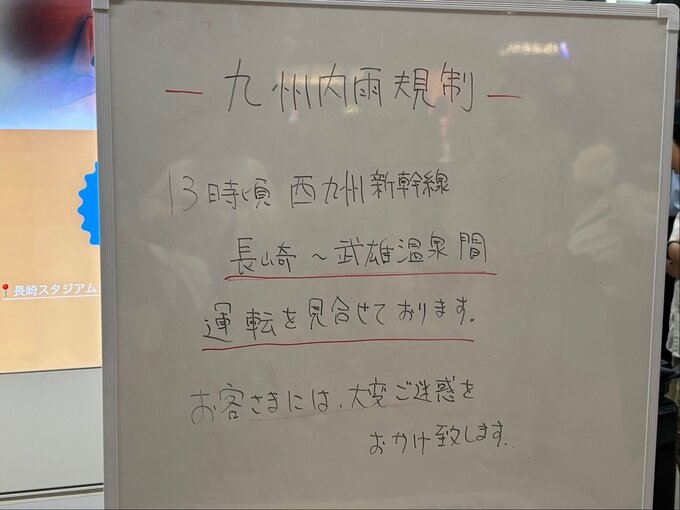 ― 九州内雨規制 ―
13時頃 西九州新幹線
長崎～武雄温泉間
運転を見合せております。
お客さまには、大変ご迷惑を
おかけ致します。
長崎スタジアム